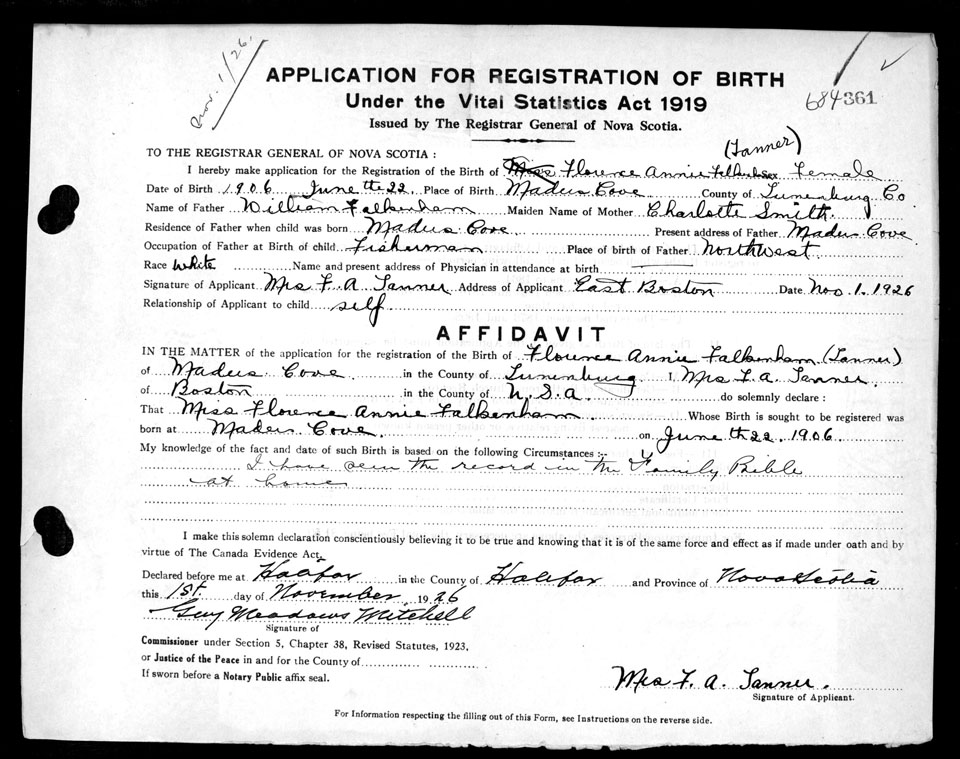 Nov. 1/26.
684361
APPLICATION FOR REGISTRATION OF BIRTH
Under the Vital Statistics Act 1919
Issued by The Registrar General of Nova Scotia.
(Tanner)
TO THE REGISTRAR GENERAL OF NOVA SCOTIA:
I hereby make application for the Registration of the Birth of Miss Florence Annie Sex Female
Date of Birth 1906 June th 22 Place of Birth Maders Cove County of Lunenburg Co.
Name of Father William Falkenham Maiden Name of Mother Charlotte Smith.
Residence of Father when child was born Maders Cove Present address of Father Maders Cove
Occupation of Father at Birth of child Fisherman Place of birth of Father NorthWest
Race White Name and present address of Physician in attendance at birth
Signature of Applicant Mrs F. A. Tanner Address of Applicant East Boston Date Nov. 1. 1926
Relationship of Applicant to child self
AFFIDAVIT
IN THE MATTER of the application for the registration of the Birth of Florence Annie Falkenham (Tanner)
of Maders Cove in the County of Lunenburg I, Mrs F. A. Tanner.
of Boston in the County of U.S.a. do solemnly declare:
That Miss Florence Annie Falkenham Whose Birth is sought to be registered was
born at Maders Cove. on June th 22. 1906.
My knowledge of the fact and date of such Birth is based on the following Circumstances:-
I have seen the record in the Family Bible
at home
I make this solemn declaration conscientiously believing it to be true and knowing that it is of the same force and effect as if made under oath and by
virtue of The Canada Evidence Act.
Declared before me at Halifax in the County of Halifax and Province of Nova Scotia
this 1st. day of November 1926
Guy Meadows Mitchell
Signature of
Commissioner under Section 5, Chapter 38, Revised Statutes, 1923,
or Justice of the Peace in and for the County of
If sworn before a Notary Public affix seal.
Mrs F. A. Tanner.
Signature of Applicant.
For Information respecting the filling out of this Form, see Instructions on the reverse side.